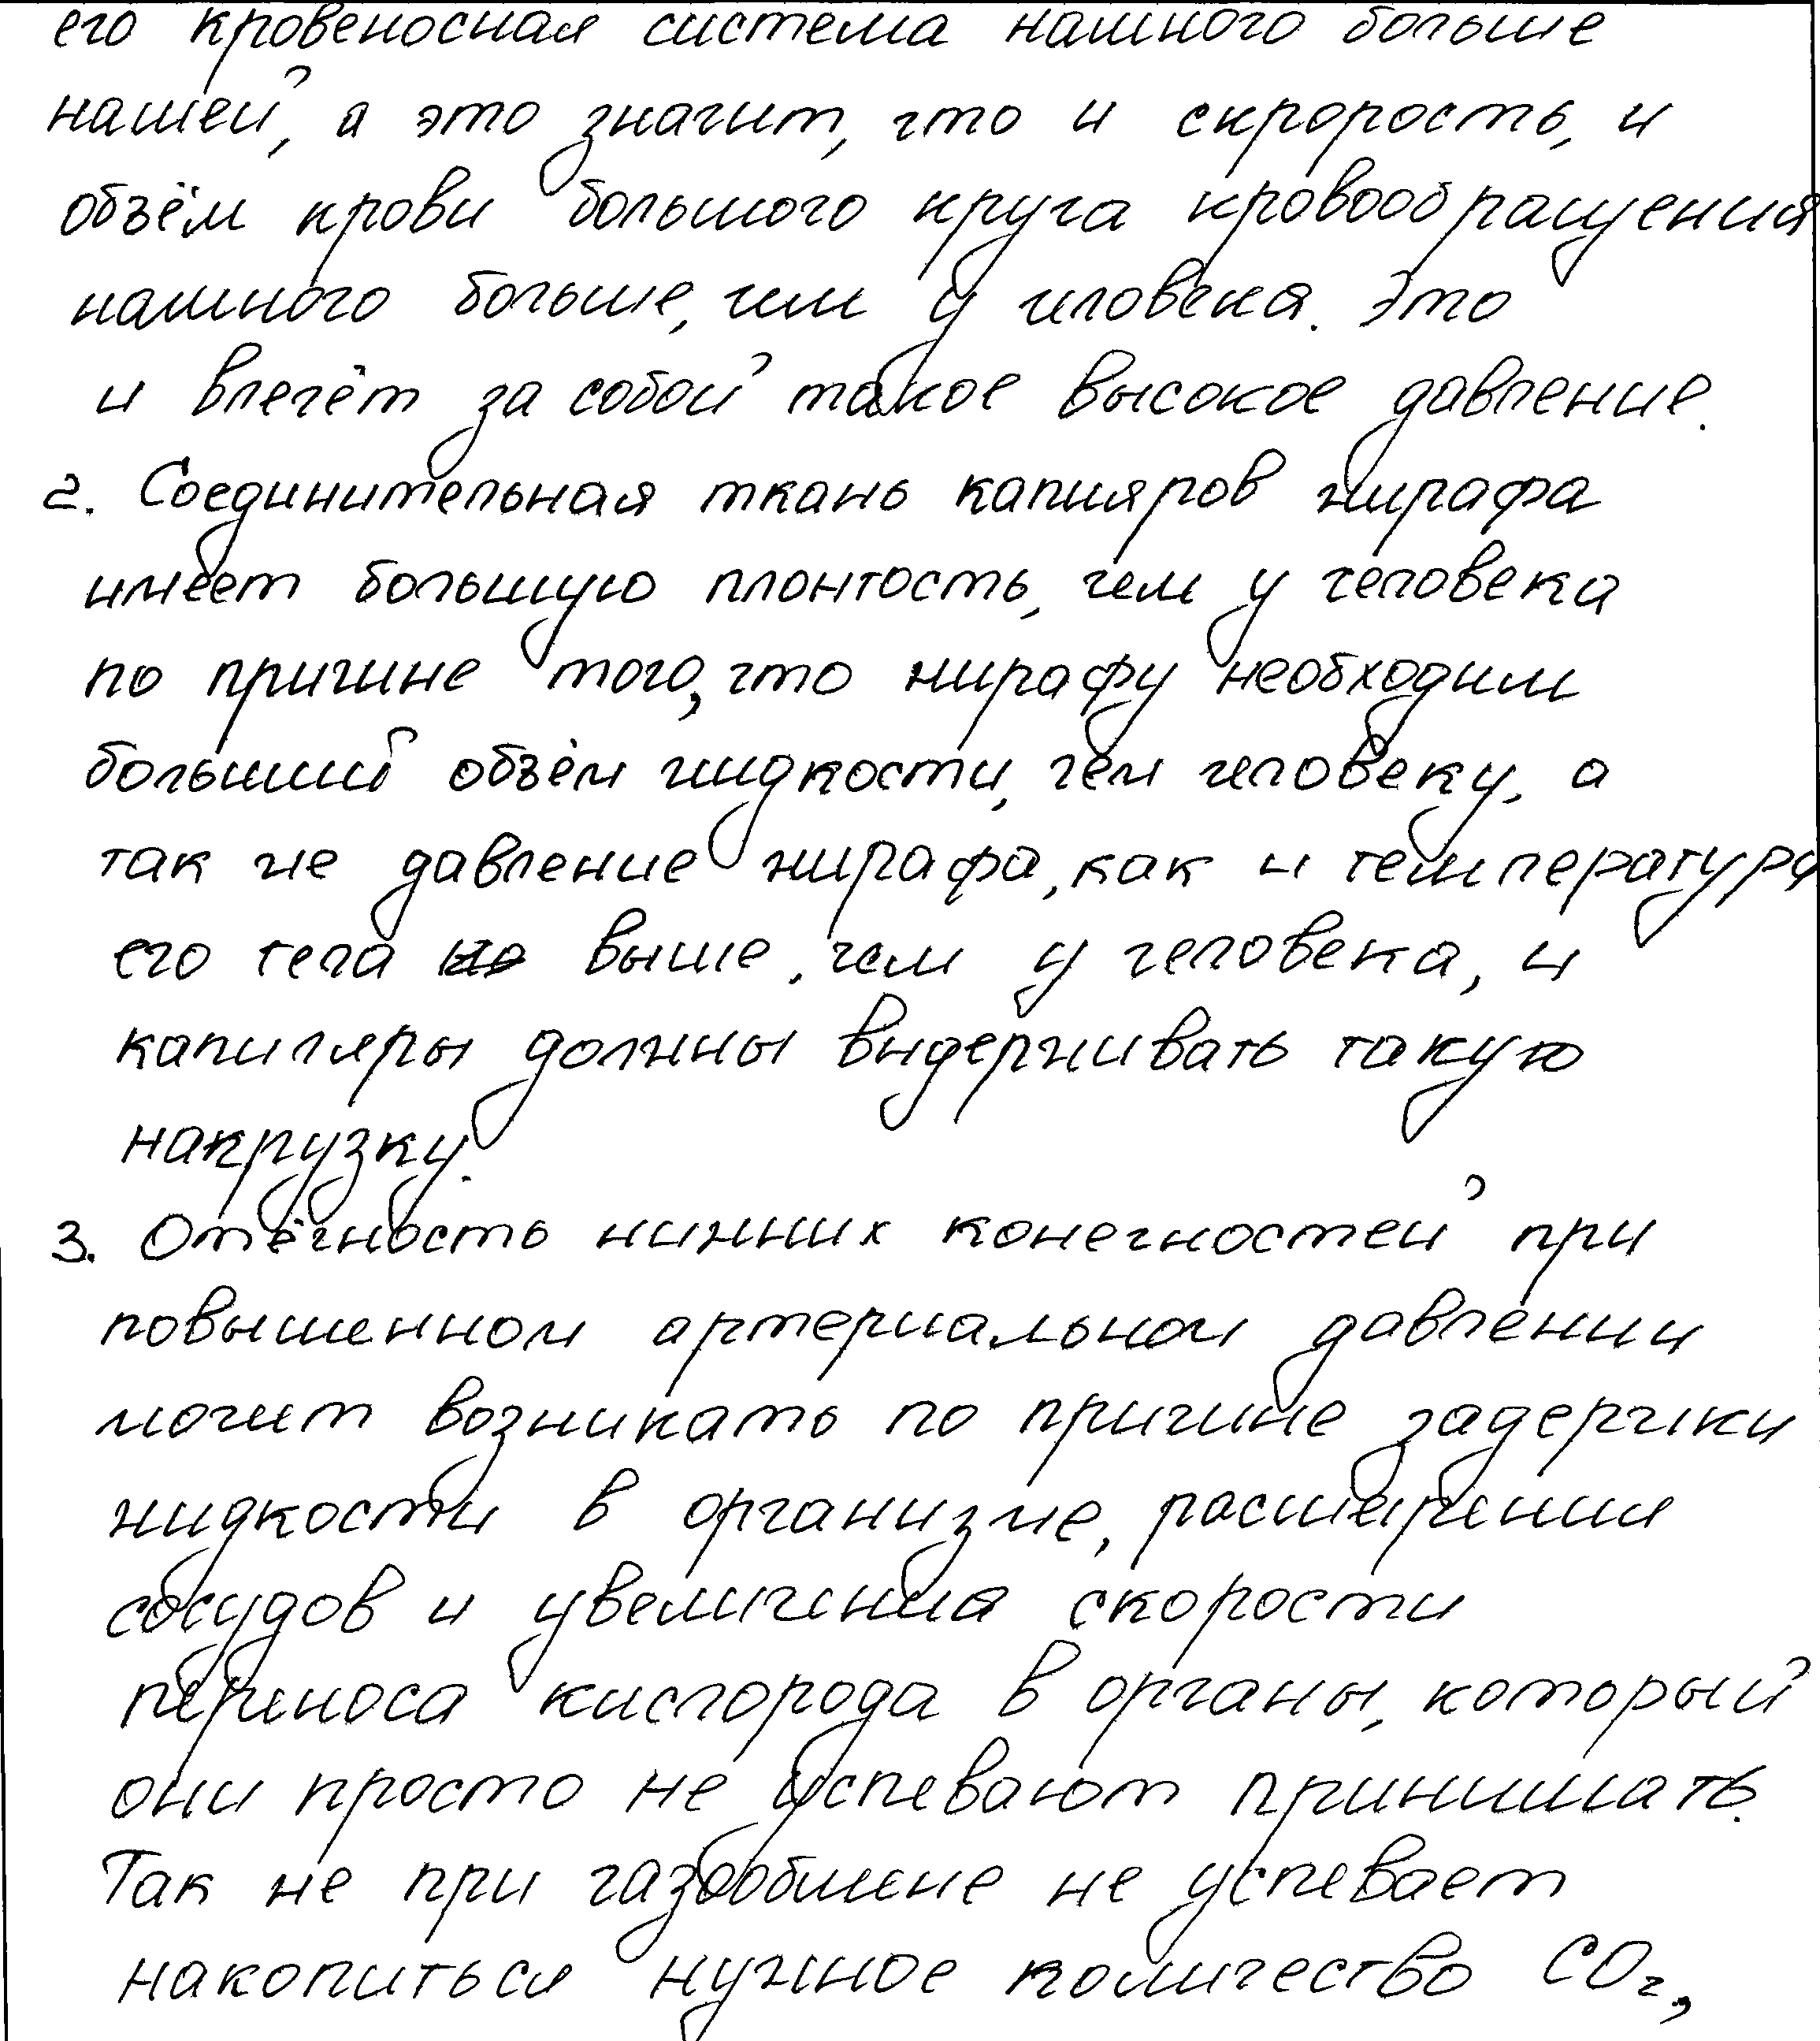 его кровеносная система намного больше
нашей, а это значит, что и скрорость, и
объём крови большого круга кровообращения
намного больше, чем у человека. Это
и влечёт за собой такое высокое давление.
2. Соединительная ткань капияров жирафа
имеет большую плонтость, чем у человека
по причине того, что жирафу необходим
больший объём жидкости, чем человеку, а
так же давление жирафа, как и температура
его тела выше, чем у человека, и
капиляры должны выдерживать такую
накрузку.
3. Отёчность нижних конечностей при
повышенном артериальном давлении
может возникать по причине задержки
жидкости в организме, расширения
сосудов и увеличения скорости
переноса кислорода в органы, который
они просто не успевают принимать.
Так же при газообмене не успевает
накопиться нужное количество CO₂,